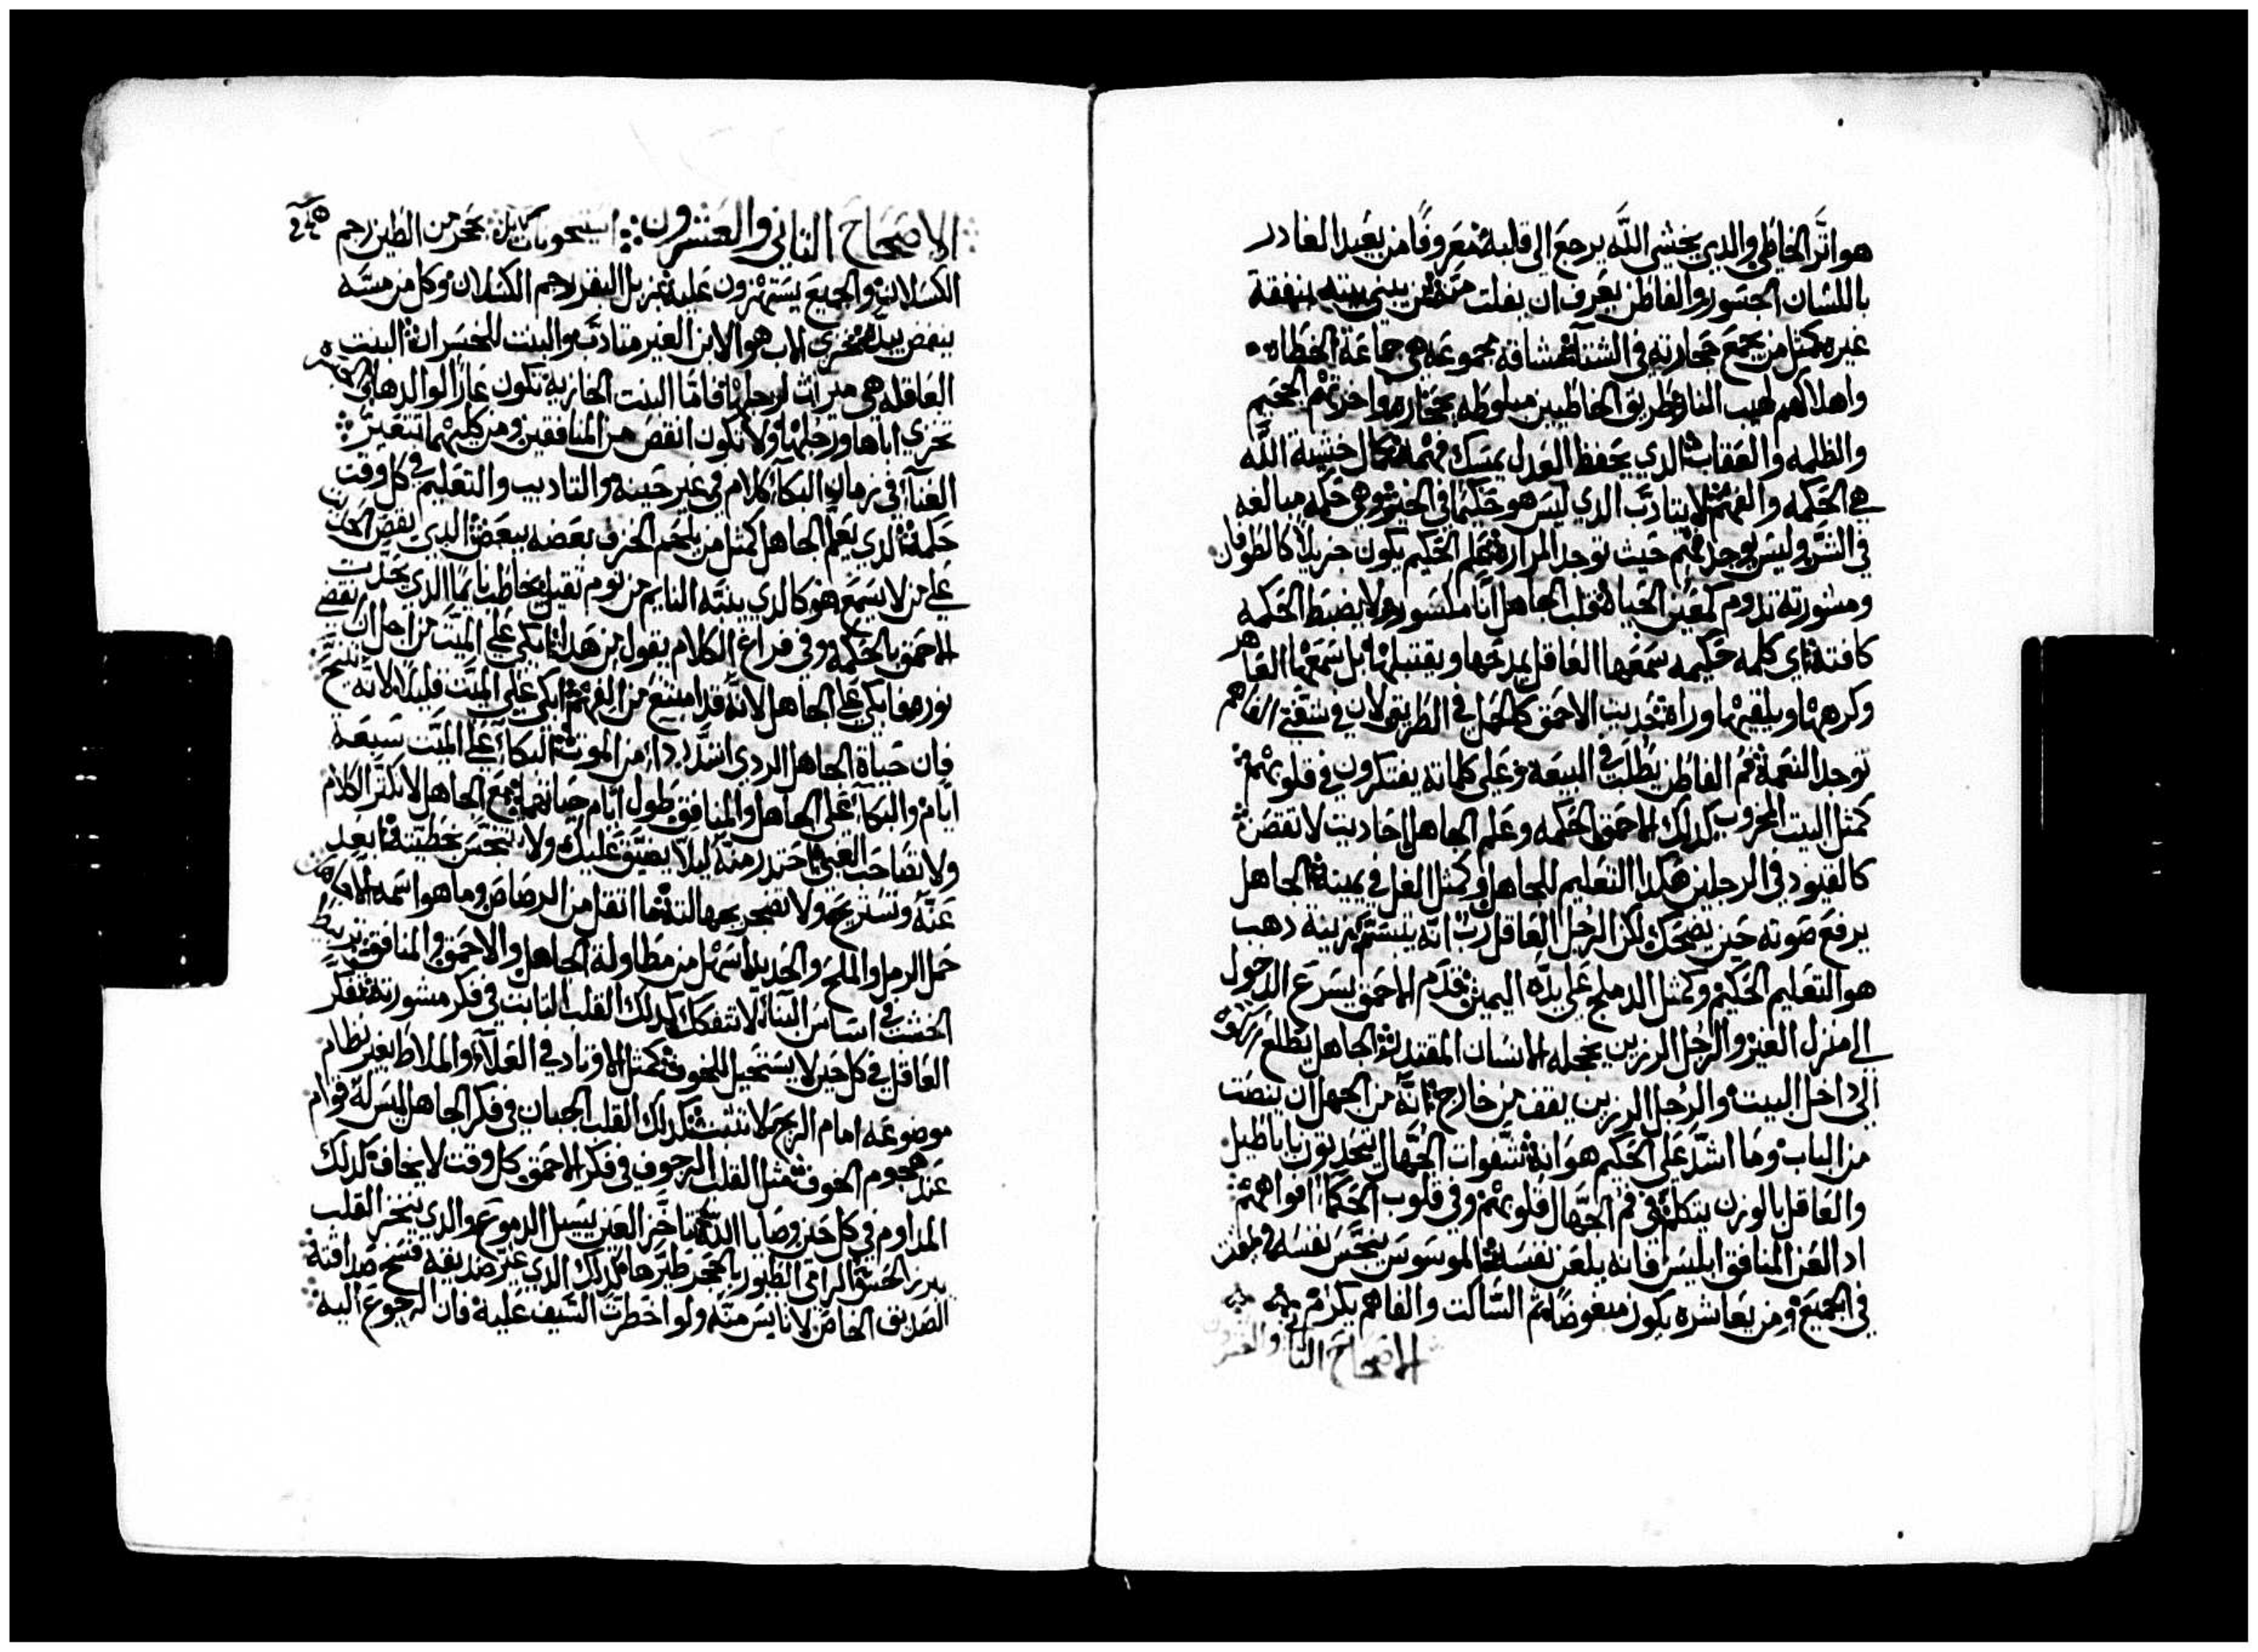 هو اثر الخاطي والذي يخشي الله يرجع الى قلبه معروفًا من بعيد القادر
باللسان الجسور والفاطن يعرف ان يفلت منه من يبني بيته بنفقة
غيره كمثل من يجمع حجارته في الشتاء مشاقه مجموعه هي جماعة الخطاه
واهلاكهم لهيب النار طريق الخاطيين مبلوطه بحجاره واخرتهم الجحيم
والظلمه والعقاب الذي يحفظ العدل يمسك فهمه كمال خشية الله
هي الحكمه والفهم لا يتادب الذي ليس هو حكيمًا في الخير وهي حكمه مبالغه
في الشر وليس يوجد فهم حيث توجد المراره علم الحكيم يكون جزيلاً كالطوفان
ومشورته تدوم كمعين الحياه قلب الجاهل اناء مكسور ولا يضبط الحكمه
كافتة اي كلمه حكيمه سمعها العاقل يمدحها ويقتبلها بل سمعها القاهر
وكرهها ويلقيها وراه حديث الاحمق كالحمل في الطريق لان في شفتي الفاهم
توجد النعمة فم الفاطن يطلب في البيعه وعلى كلماته يفتكرون في قلوبهم
كمثل البيت المخروب كذلك للاحمق الحكمه وعلم الجاهل احاديث لا تقصن
كالقيود في الرجلين هكذا التعليم للجاهل وكمثل الغل في يمينه الجاهل
يرفع صوته حين يضحك لكن الرجل العاقل رب انه يتبسم كزينة دهب
هو التعليم الحكيم وكمثل الدملج على يده اليمين قدم الاحمق يسرع الدخول
الى منزل الغير والرجل الرزين يخجله الانسان المقتدر الجاهل يطلع من الكوه
الى داخل البيت والرجل الرزين يقف من خارج انه من الجهل ان ينصت
من الباب وما اشد على الحكيم هوانه شفوات الجهال يتحدثون باباطيل
والعاقل بالوزن يتكلم في فم الجهال قلوبهم وفي قلوب الحكماء افواههم
اد العن المنافق ابليس فانه يلعن نفسه الموسوس ينجس نفسه ويمقت
في الجميع ومن يعاشره يكون مبغوضًا ثم الساكت والفاهم يكرم
الاصحاح الثاني والعشرون
الاصحاح الثاني والعشرون بحجر من الطين رجم
الكسلان والجميع يستهزون عليه بزبل البقر رجم الكسلان وكل من مسه
ينفض يده خزي الاب هو الابن الغير متادب والبنت للخسران البنت
العاقله هي ميراث لرجلها فاما البنت الخازيه تكون عارًا لوالدها الجاسره
تخزي اباها ورجلها ولا تكون انقص من المنافقين ومن كليهما تتعير
الغناء في زمان البكاء كلام في غير حينه والتاديب والتعليم في كل وقت
حكمة الذي يعلم الجاهل كمثل من يلحم الخزف بعضه ببعض الذي يقص الحديث
على من لا يسمع هو كالذي ينبه النايم من نوم ثقيل يخاطب نايمًا الذي يحدث
الاحمق بالحكمه وفي فراغ الكلام يقول من هذا ابكي على الميت من اجل ان نقص
نوره وابكي على الجاهل لانه قد امتنع من الفهم ابكي على الميت قليلاً لانه نيح
فان حياة الجاهل الردي اشد رداء من الموت البكاء على الميت سبعة
ايام والبكاء على الجاهل والمنافق طول ايام حياتهما مع الجاهل لا تكثر الكلام
ولا تصاحب الغبي احتدر منه ليلا يضيق عليك ولا تتنجس بخطيته ابعد
عنه وتستريح ولا تضجر بجهالته ما اثقل من الرصاص وما هو اسمه الا الاحمق
حمل الرمل والملح والحديد اسهل من مطاولة الجاهل والاحمق والمنافق تربيط
الخشب في اساس البناء لا يتفكك كذلك القلب الثابت في فكر مشورته تفكر
العاقل في كل حين لا يستحيل للخوف كمثل الاوتاد في العلاء والملاط بغير نظام
موضوعه امام الريح لا تثبت كذلك القلب الجبان في فكر الجاهل ليس له قوام
عند هجوم الخوف مثل القلب الرجوف في فكر الاحمق كل وقت لا يخاف كذلك
المداوم في كل حين وصايا الله ناخز العين يسيل الدموع والذي ينخز القلب
يبرز الحس الرامي الطيور بالحجر طيرها كذلك الذي عير صديقه فسح صداقته
الصديق الخاص لا تايس منه ولو اخطرت السيف عليه فان الرجوع اليه